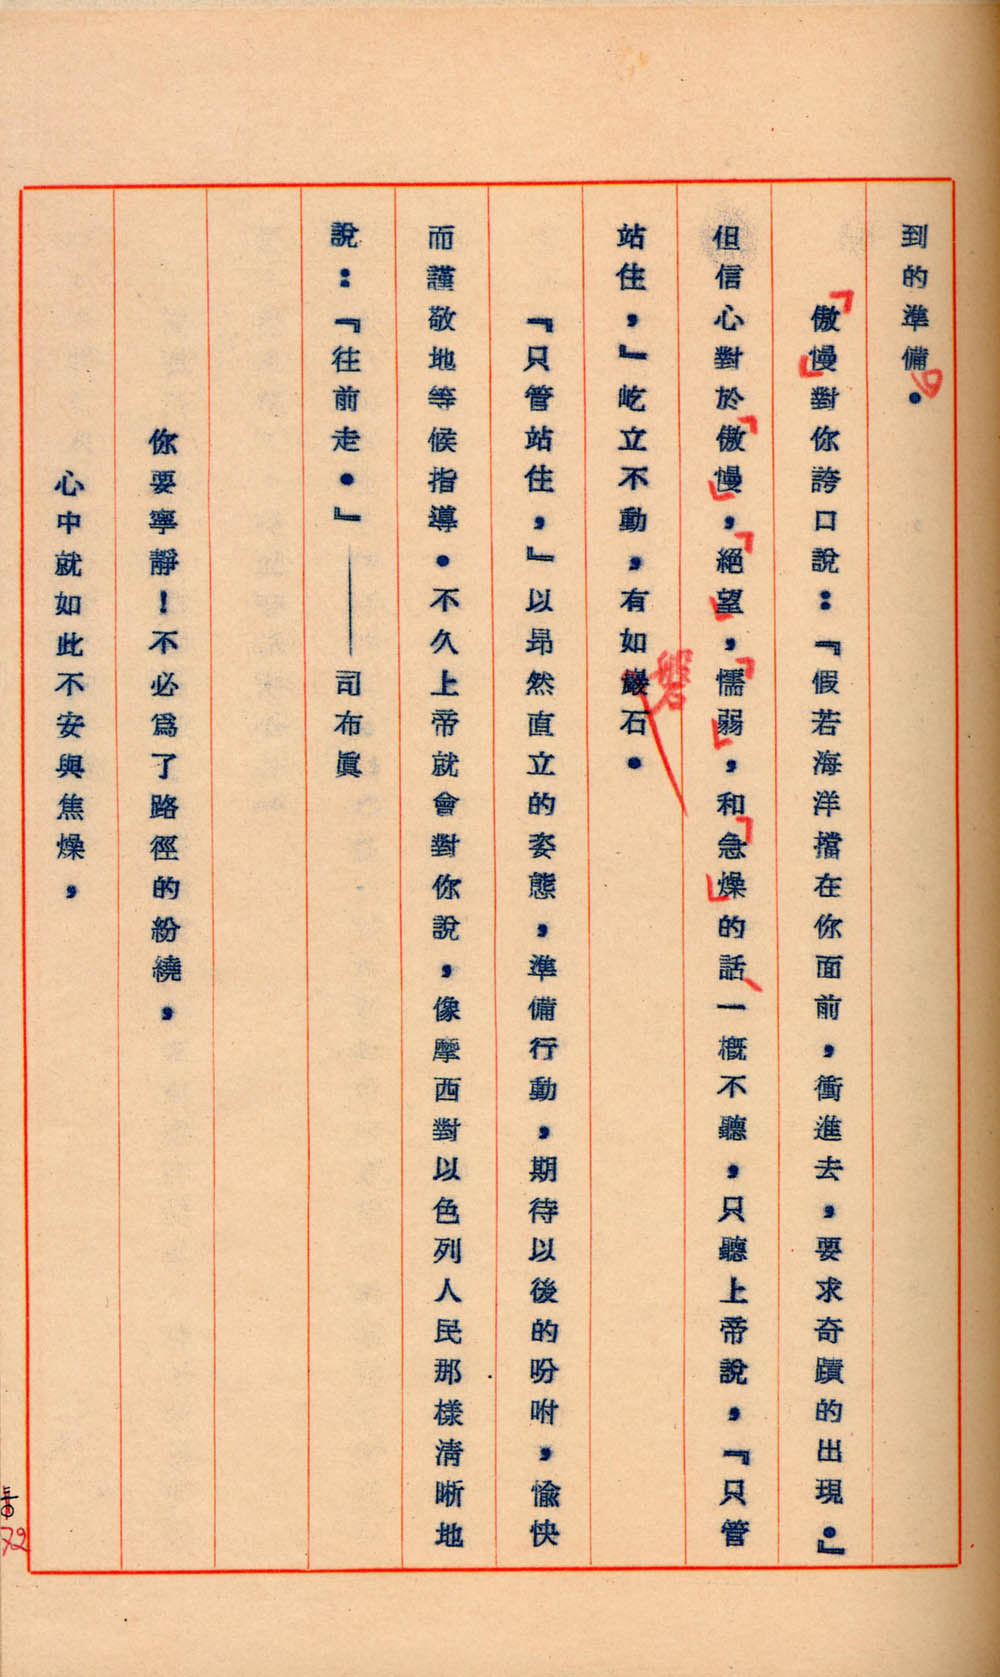 到的準備。
傲慢對你誇口說：『假若海洋擋在你面前，衝進去，要求奇蹟的出現。』
但信心對於傲慢，絕望，懦弱，和急燥的話一概不聽，只聽上帝說，『只管
站住，』屹立不動，有如巖石。
磐
『只管站住，』以昂然直立的姿態，準備行動，期待以後的吩咐，愉快
而謹敬地等候指導。不久上帝就會對你說，像摩西對以色列人民那樣清晰地
說：『往前走。』——司布眞
你要寧靜！不必爲了路徑的紛繞，
心中就如此不安與焦燥，
72